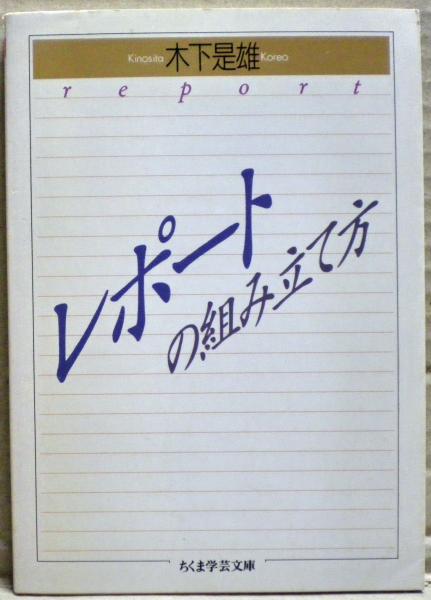 Kinosita 木下是雄 Koreo
report
レポート
の組み立て方
ちくま学芸文庫